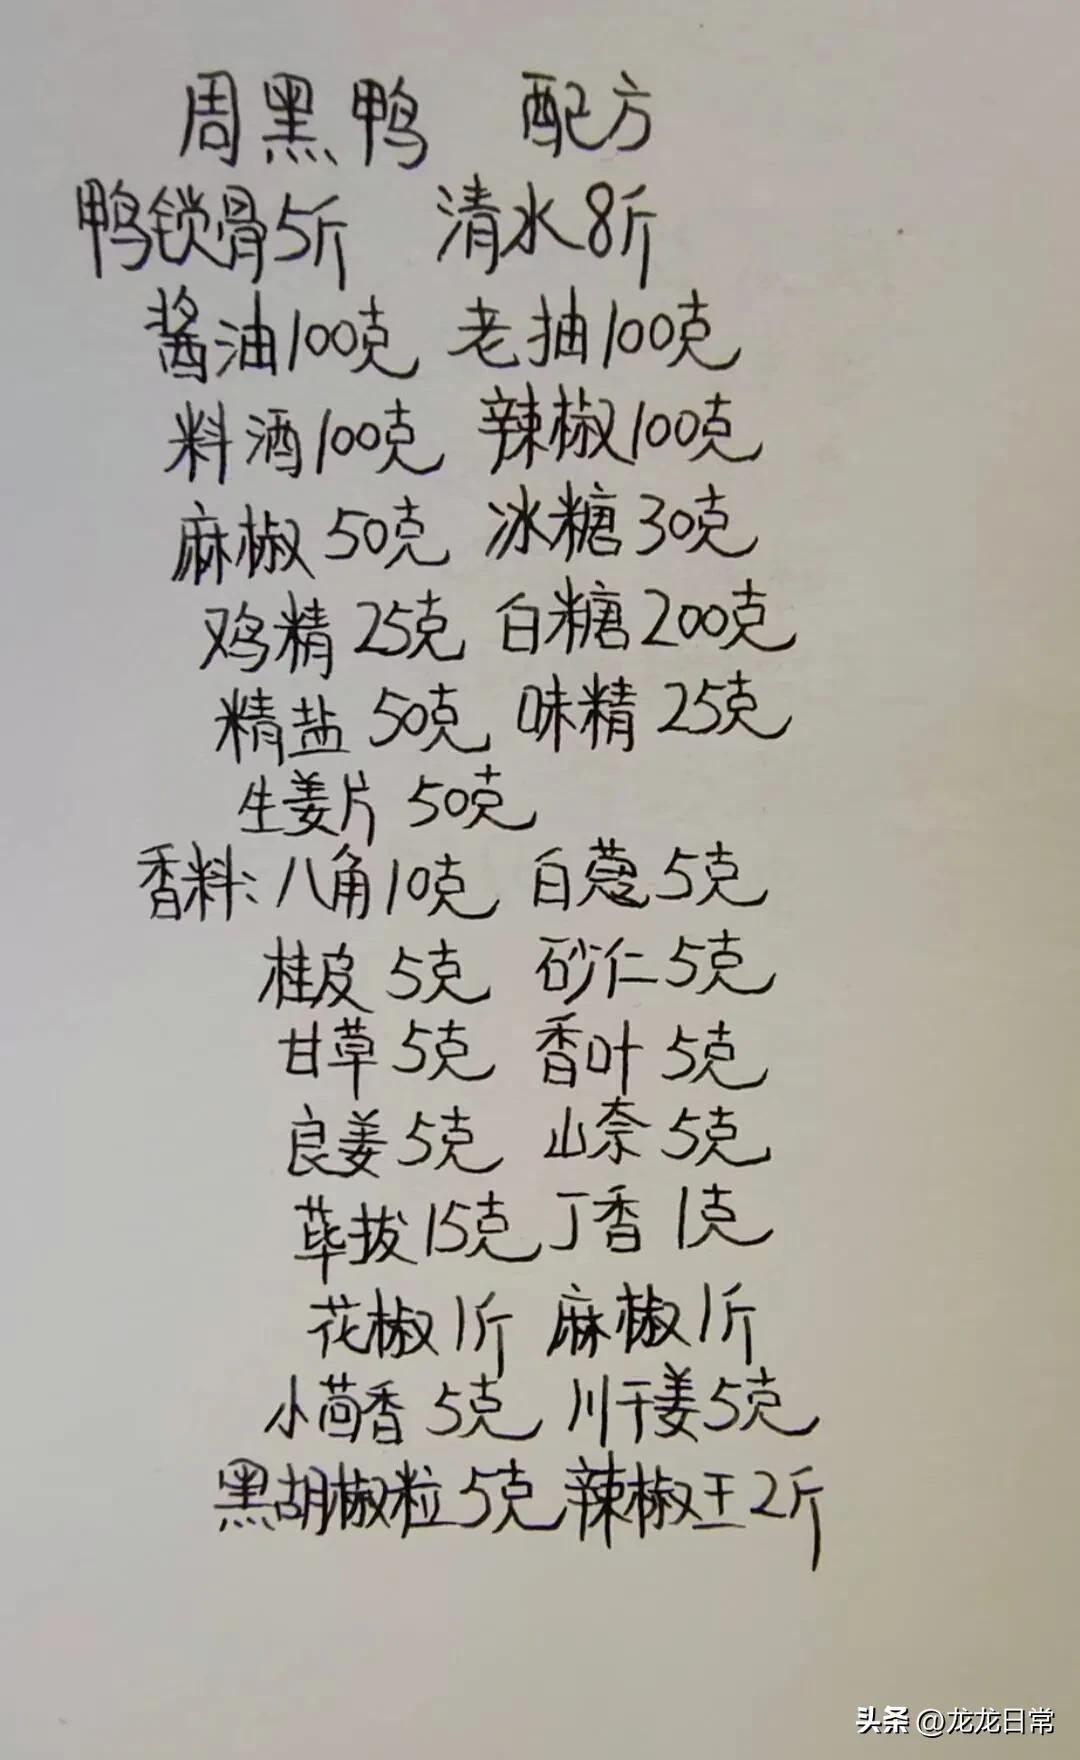 周黑鸭 配方
鸭锁骨5斤 清水8斤
酱油100克 老抽100克
料酒100克 辣椒100克
麻椒50克 冰糖30克
鸡精25克 白糖200克
精盐50克 味精25克
生姜片50克
香料: 八角10克 白蔻5克
桂皮5克 砂仁5克
甘草5克 香叶5克
良姜5克 山奈5克
荜拔15克 丁香1克
花椒1斤 麻椒1斤
小茴香5克 川干姜5克
黑胡椒粒5克 辣椒王2斤
头条 @龙龙日常